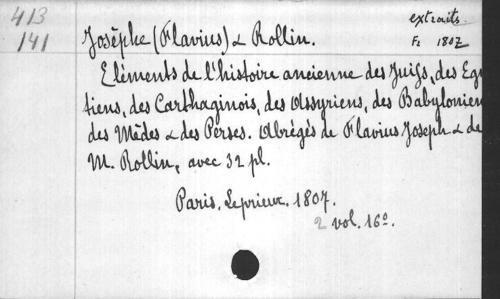 413 extraits
141 Fr 1807
Josèphe (Flavius) & Rollin.
Eléments de l'histoire ancienne des Juifs, des Egy
tiens, des Carthaginois, des Assyriens, des Babylonien
des Mèdes & des Perses. Abrégés de Flavius Joseph & de
M. Rollin, avec 32 pl.
Paris. Leprieur. 1807.
2 vol. 16º.